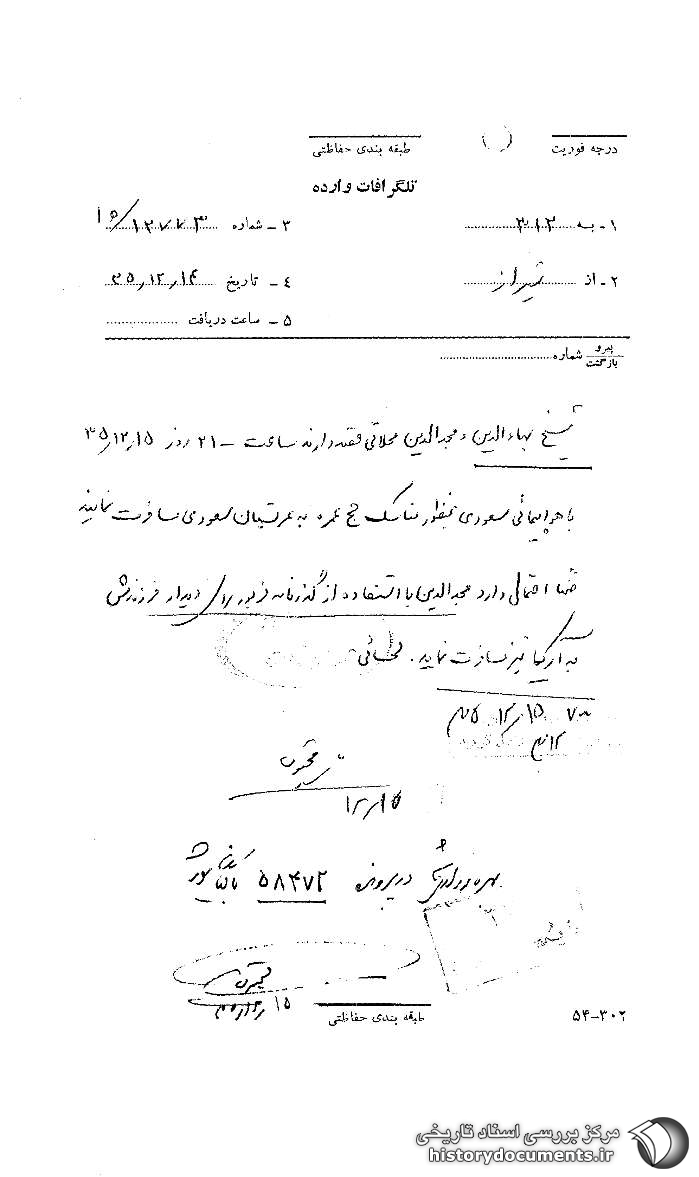 درجه فوریت
طبقه بندی حفاظتی
تلگرافات وارده
۱ - به ۳۱۲
۳ - شماره ۱۲۷۷۳/۱۵
۲ - از شیراز
۴ - تاریخ ۳۵،۱۲،۱۴
۵ - ساعت دریافت
پیرو
بازگشت
شماره
شیخ بهاءالدین و مجدالدین محلاتی قصد دارند ساعت ۲۱ روز ۳۵،۱۲،۱۵
با هواپیمائی سعودی بمنظور مناسک حج عمره به عربستان سعودی مسافرت نمایند
ضمنا احتمال دارد مجدالدین با استفاده از گذرنامه مزبور برای دیدار فرزندش
به آمریکا نیز مسافرت نماید.
۱۵،۱۲
۱۲،۱۵
بهره برداری در پرونده ۵۸۴۷۲ بایگانی شود
۱۵
طبقه بندی حفاظتی
۵۴-۳۰۲
مرکز بررسی اسناد تاریخی
historydocuments.ir